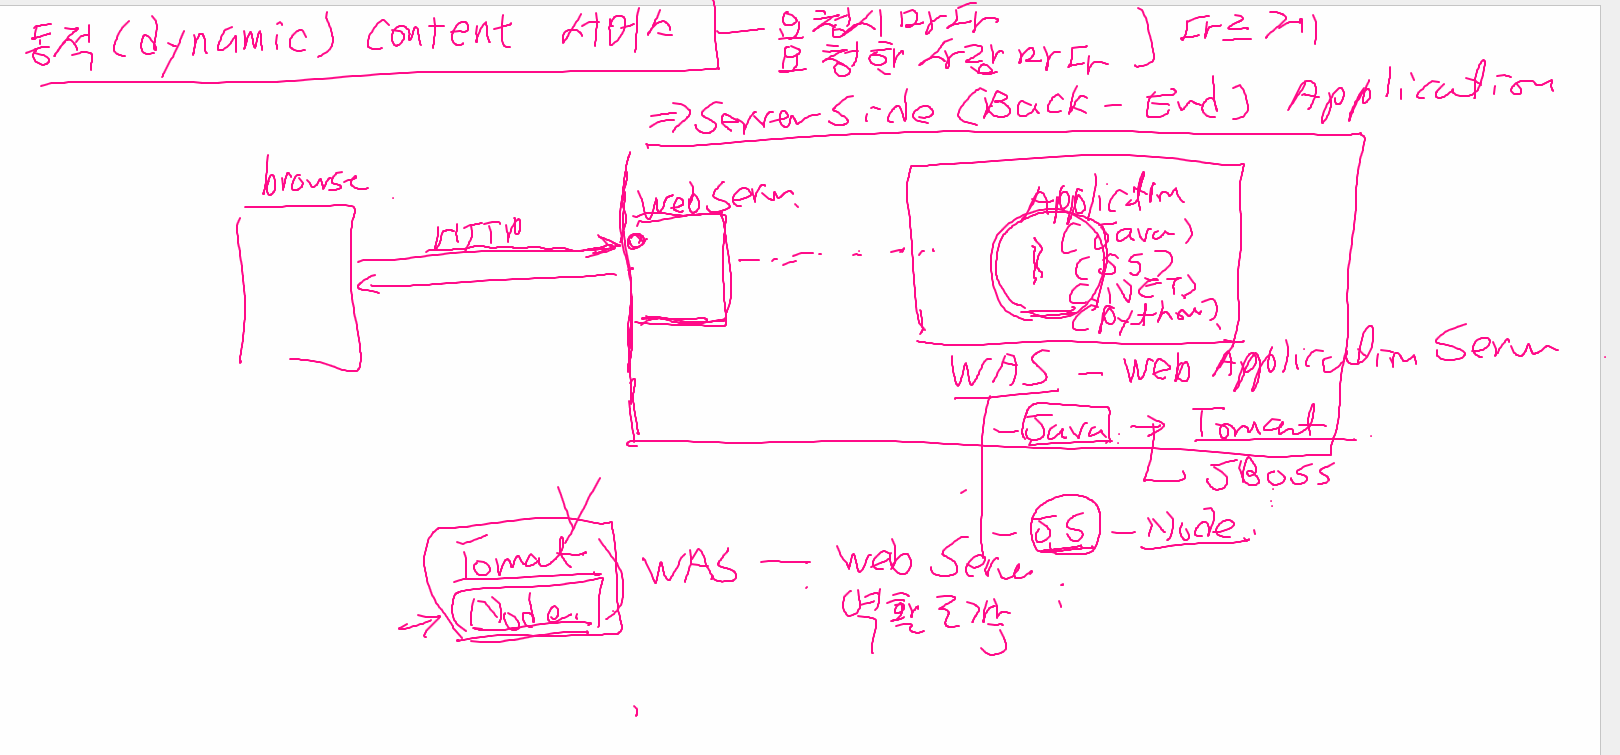 동적(dynamic) content 서비스 - 요청시마다
요청한 사람마다 ) 다르게
⇒ Server Side (Back-End) Application
browse
HTTP
web Server
Application
(Java)
(JS)
(.NET)
(python)
WAS - web Application Server
- Java → Tomcat
JBoss
- JS - Node.
Tomcat
Node.
WAS — web Server
역할 포함